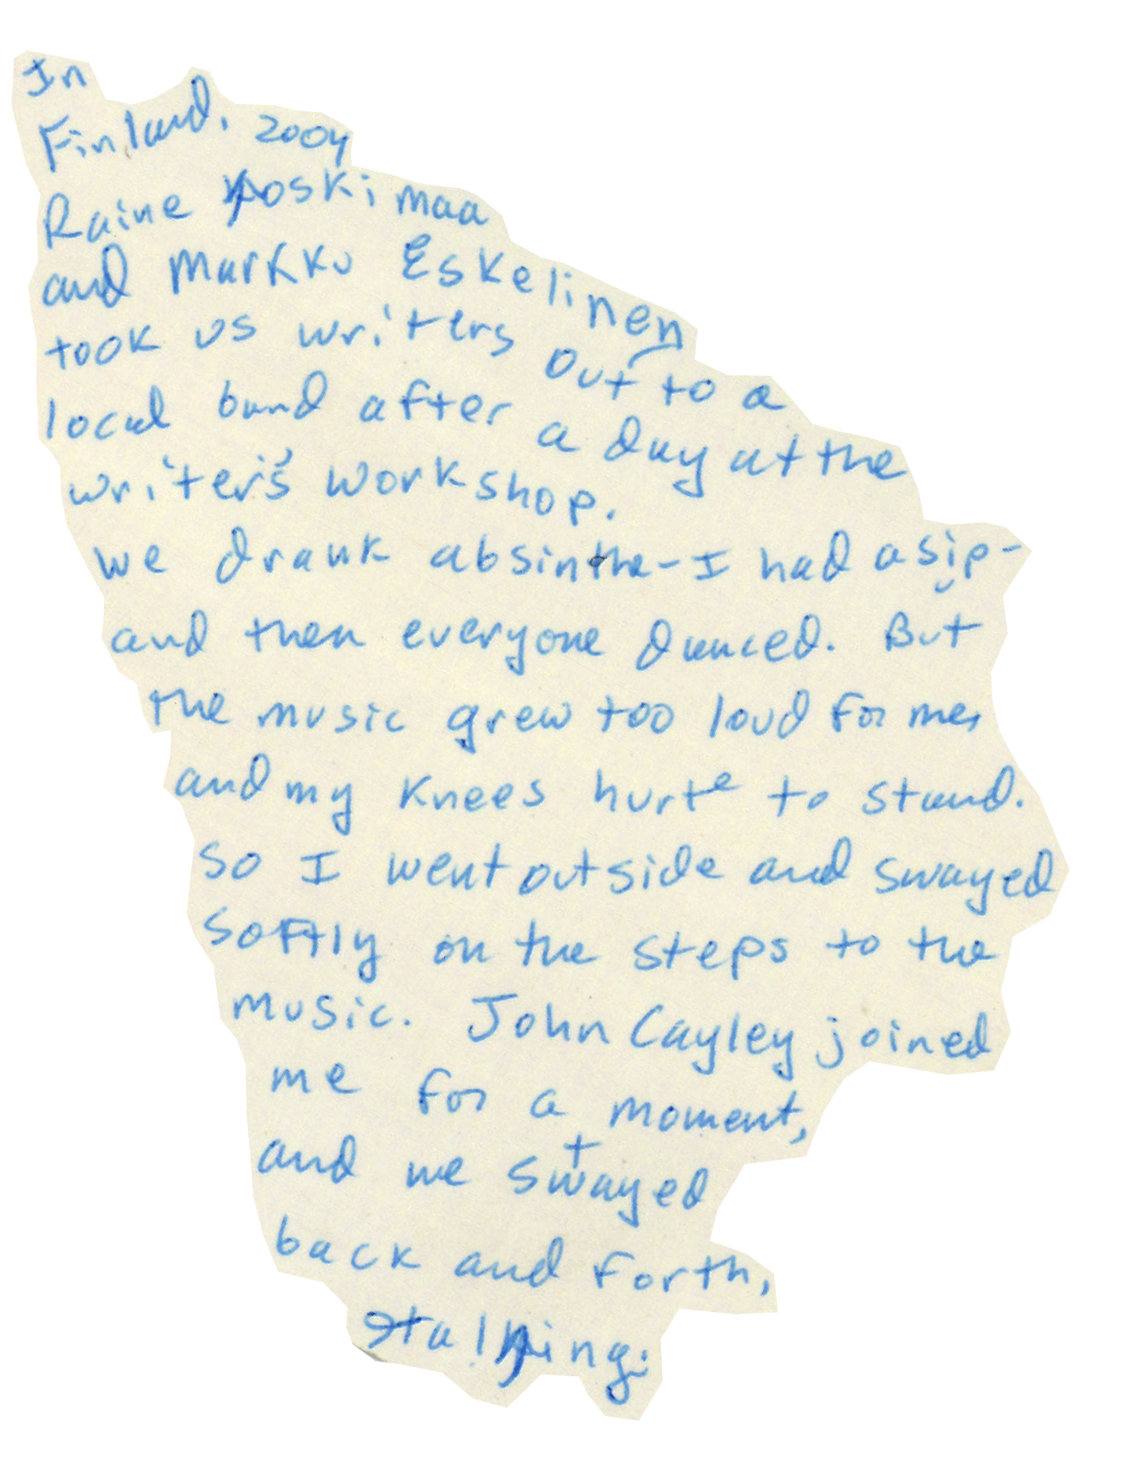 In
Finland, 2004
Raine Koskimaa
and Markku Eskelinen
took us writers out to a
local band after a day at the
writer's workshop.
We drank absinthe - I had a sip -
and then everyone danced. But
the music grew too loud for me,
and my knees hurt to stand.
So I went outside and swayed
softly on the steps to the
music. John Cayley joined
me for a moment,
and we swayed
back and forth,
talking.